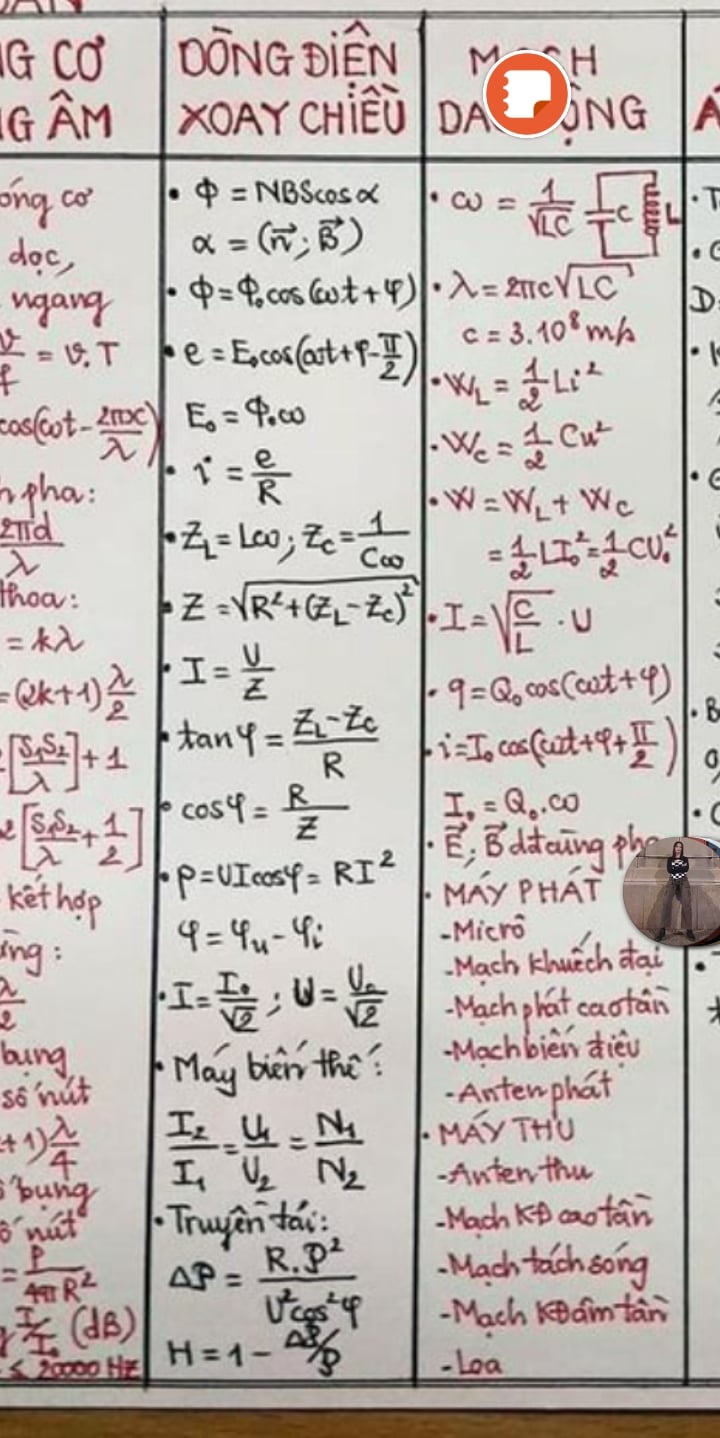 G CƠ
G ÂM
óng cơ
dọc,
ngang
= v.T
cos(ωt - 2πx/λ)
pha:
2πd/λ
thoa:
= kλ
=(2k+1) λ/2
[S₁S₂/λ]+1
2[S₁S₂/λ + 1/2]
kết hợp
ừng:
λ/2
bụng
số nút
+1) λ/4
bụng
nút
= P/4πR²
I/I₀ (dB)
≤ 20000 HZ
DÒNG ĐIỆN
XOAY CHIỀU
• Φ = NBScosα
α = (n⃗; B⃗)
• Φ = Φ₀cos(ωt + φ)
• e = E₀cos(ωt+φ-π/2)
E₀ = Φ₀ω
• i = e/R
• Z_L = Lω; Z_C = 1/Cω
• Z = √R²+(Z_L-Z_C)²
• I = U/Z
• tanφ = Z_L-Z_C/R
• cosφ = R/Z
• P = UIcosφ = RI²
φ = φᵤ - φᵢ
• I = I₀/√2; U = U₀/√2
• Máy biến thế:
I₂/I₁ = U₁/U₂ = N₁/N₂
• Truyền tải:
ΔP = R.P²/U²cos²φ
H = 1 - ΔP/P
MẠCH
DAO ĐỘNG
• ω = 1/√LC C L
• λ = 2πc√LC
c = 3.10⁸ m/s
• W_L = 1/2 Li²
• W_C = 1/2 Cu²
• W = W_L + W_C
= 1/2 LI₀² = 1/2 CU₀²
• I = √C/L . U
• q = Q₀cos(ωt+φ)
• i = I₀cos(ωt+φ+π/2)
I₀ = Q₀.ω
• E⃗; B⃗ dđ cùng pha
• MÁY PHÁT
-Micrô
-Mạch khuếch đại
-Mạch phát cao tần
-Mạch biến điệu
-Anten phát
• MÁY THU
-Anten thu
-Mạch KĐ cao tần
-Mạch tách sóng
-Mạch KĐ âm tần
-Loa